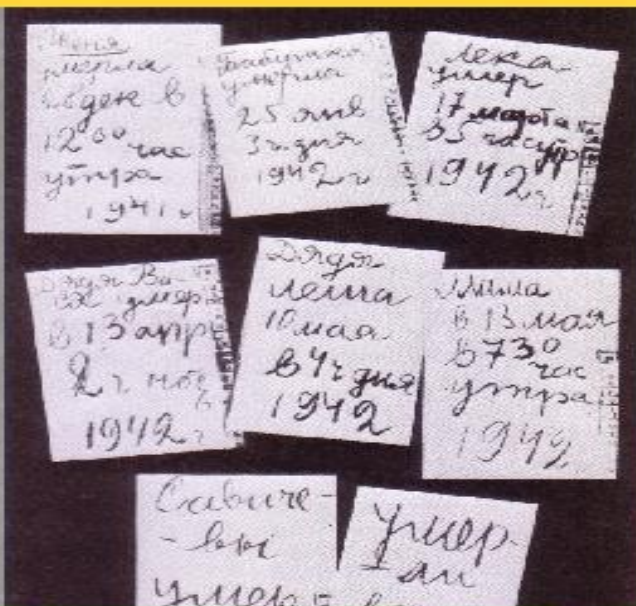 Женя
умерла
28 дек в
12 00 час
утра
1941 г
Бабушка
умерла
25 янв
3 ч дня
1942 г
Лека
умер
17 марта
в 5 час утр
1942 г
Дядя Ва-
ся умер
в 13 апр
2 ч ноч
1942 г
Дядя
Леша
10 мая
в 4 ч дня
1942
Мама
в 13 мая
в 7 30
час
утра
1942
Савиче-
-вы
умер
Умер-
ли